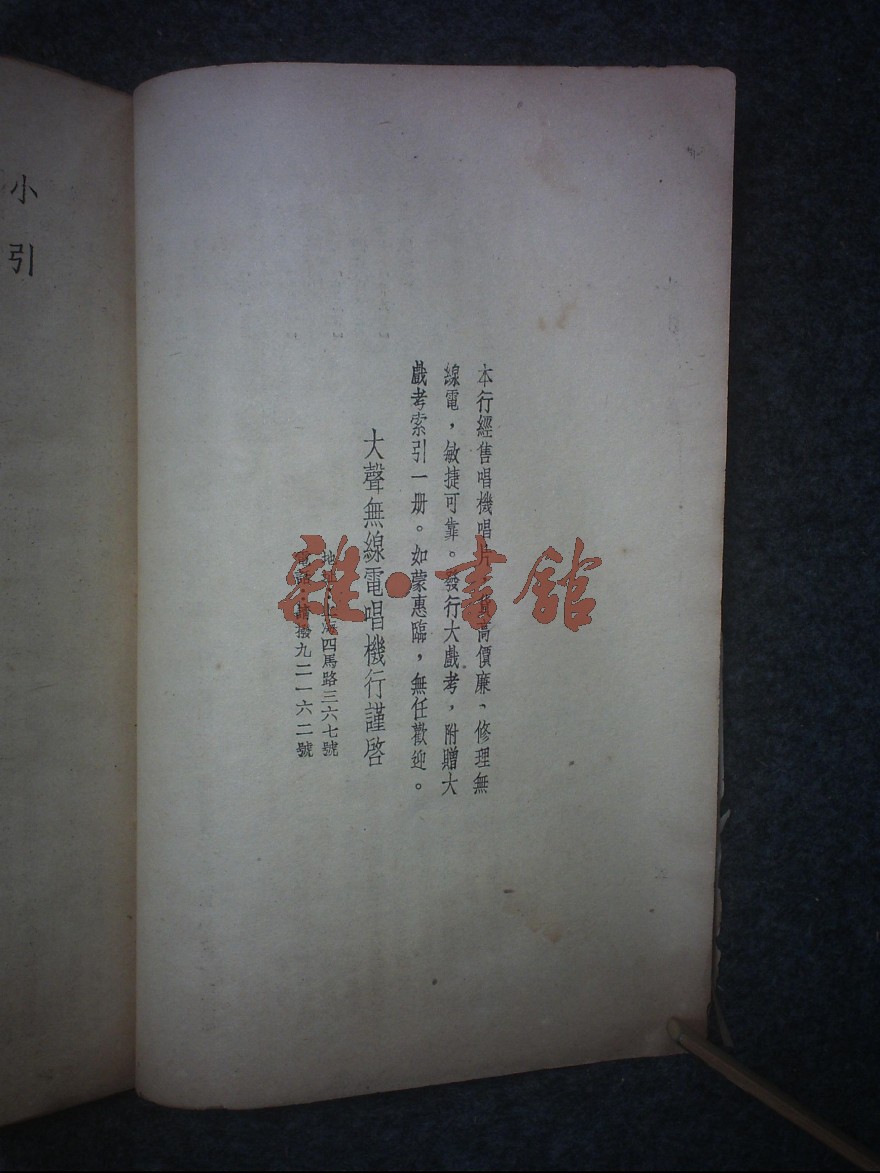 本行經售唱機唱片，貨高價廉、修理無
線電，敏捷可靠。發行大戲考，附贈大
戲考索引一册。如蒙惠臨，無任歡迎。
大聲無線電唱機行謹啓
地址：上海四馬路三六七號
電話：請撥九二一六二號
小引
雜·書館